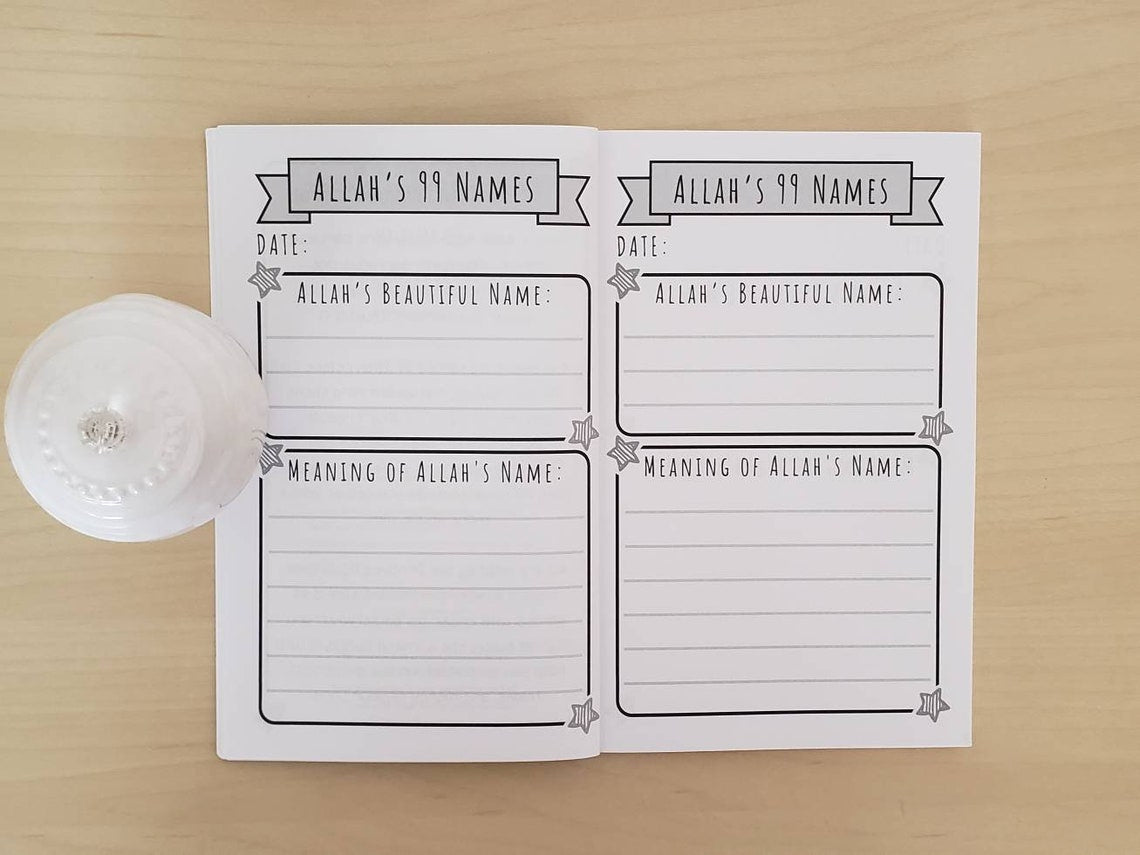 ALLAH'S 99 NAMES
DATE:
ALLAH'S BEAUTIFUL NAME:
MEANING OF ALLAH'S NAME:
ALLAH'S 99 NAMES
DATE:
ALLAH'S BEAUTIFUL NAME:
MEANING OF ALLAH'S NAME: